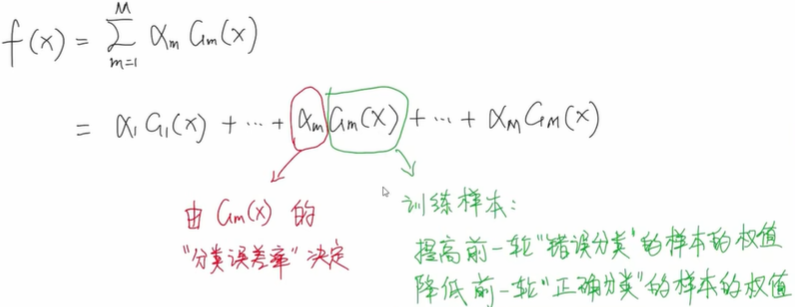 f(x) = \sum_{m=1}^{M} α_m G_m(x)
= α_1 G_1(x) + ··· + α_m G_m(x) + ··· + α_M G_M(x)
由 G_m(x) 的
"分类误差率"决定
训练样本:
提高前一轮"错误分类"的样本的权值
降低前一轮"正确分类"的样本的权值